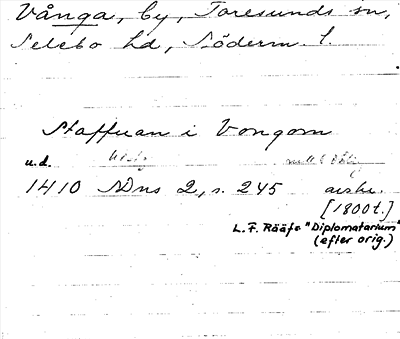 Vånga, by, Toresunds sn,
Selebo hd, Söderm. l.
Staffuan i Vongom
u.d.
1410 SDns 2, s. 245 avskr.
[1800t.]
L. F. Rääfs "Diplomatarium"
(efter orig.)